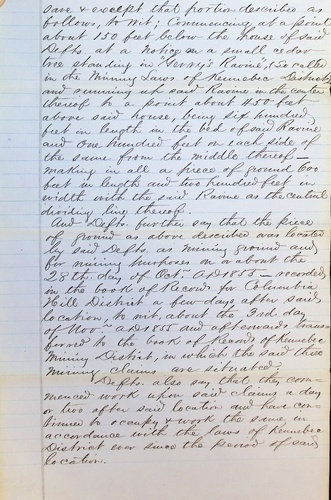 save & except that portion described as
follows, to wit; Commencing at a point
about 150 feet below the house of said
Defts, at a Notice on a small cedar
tree standing in "Gerry's Ravine", (So called
in the Mining Laws of Kennebec District)
and running up said Ravine in the center
thereof to a point about 450 feet
above said house, being six hundred
feet in length in the bed of said Ravine
and One hundred feet on each side of
the same from the middle thereof —
making in all a piece of ground 600
feet in length and two hundred feet in
width with the said Ravine as the central
dividing line thereof.
And Defts. further say that the piece
of ground as above described was located
by said Defts. as mining ground and
for mining purposes on or about the
28th day of Octr AD 1855 — recorded
in the book of Records for Columbia
Hill District a few days after said
location, to wit, about the 3rd day
of Novr AD 1855 and afterwards trans
ferred to the book of Records of Kennebec
Mining District, in which the said three
mining claims are situated.
Defts. also say that they com-
menced work upon said claims a day
or two after said location and have con-
tinued to occupy & work the same in
accordance with the laws of Kennebec
District ever since the period of said
location.